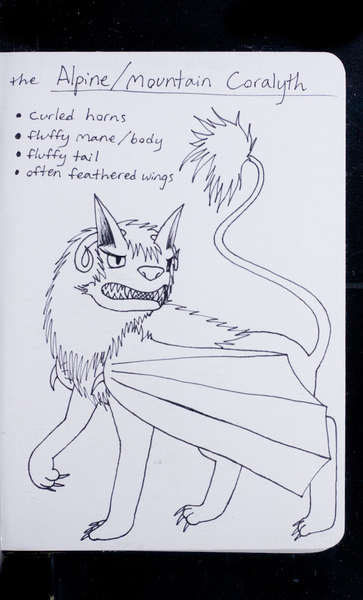 the Alpine/Mountain Coralyth
• curled horns
• fluffy mane/body
• fluffy tail
• often feathered wings